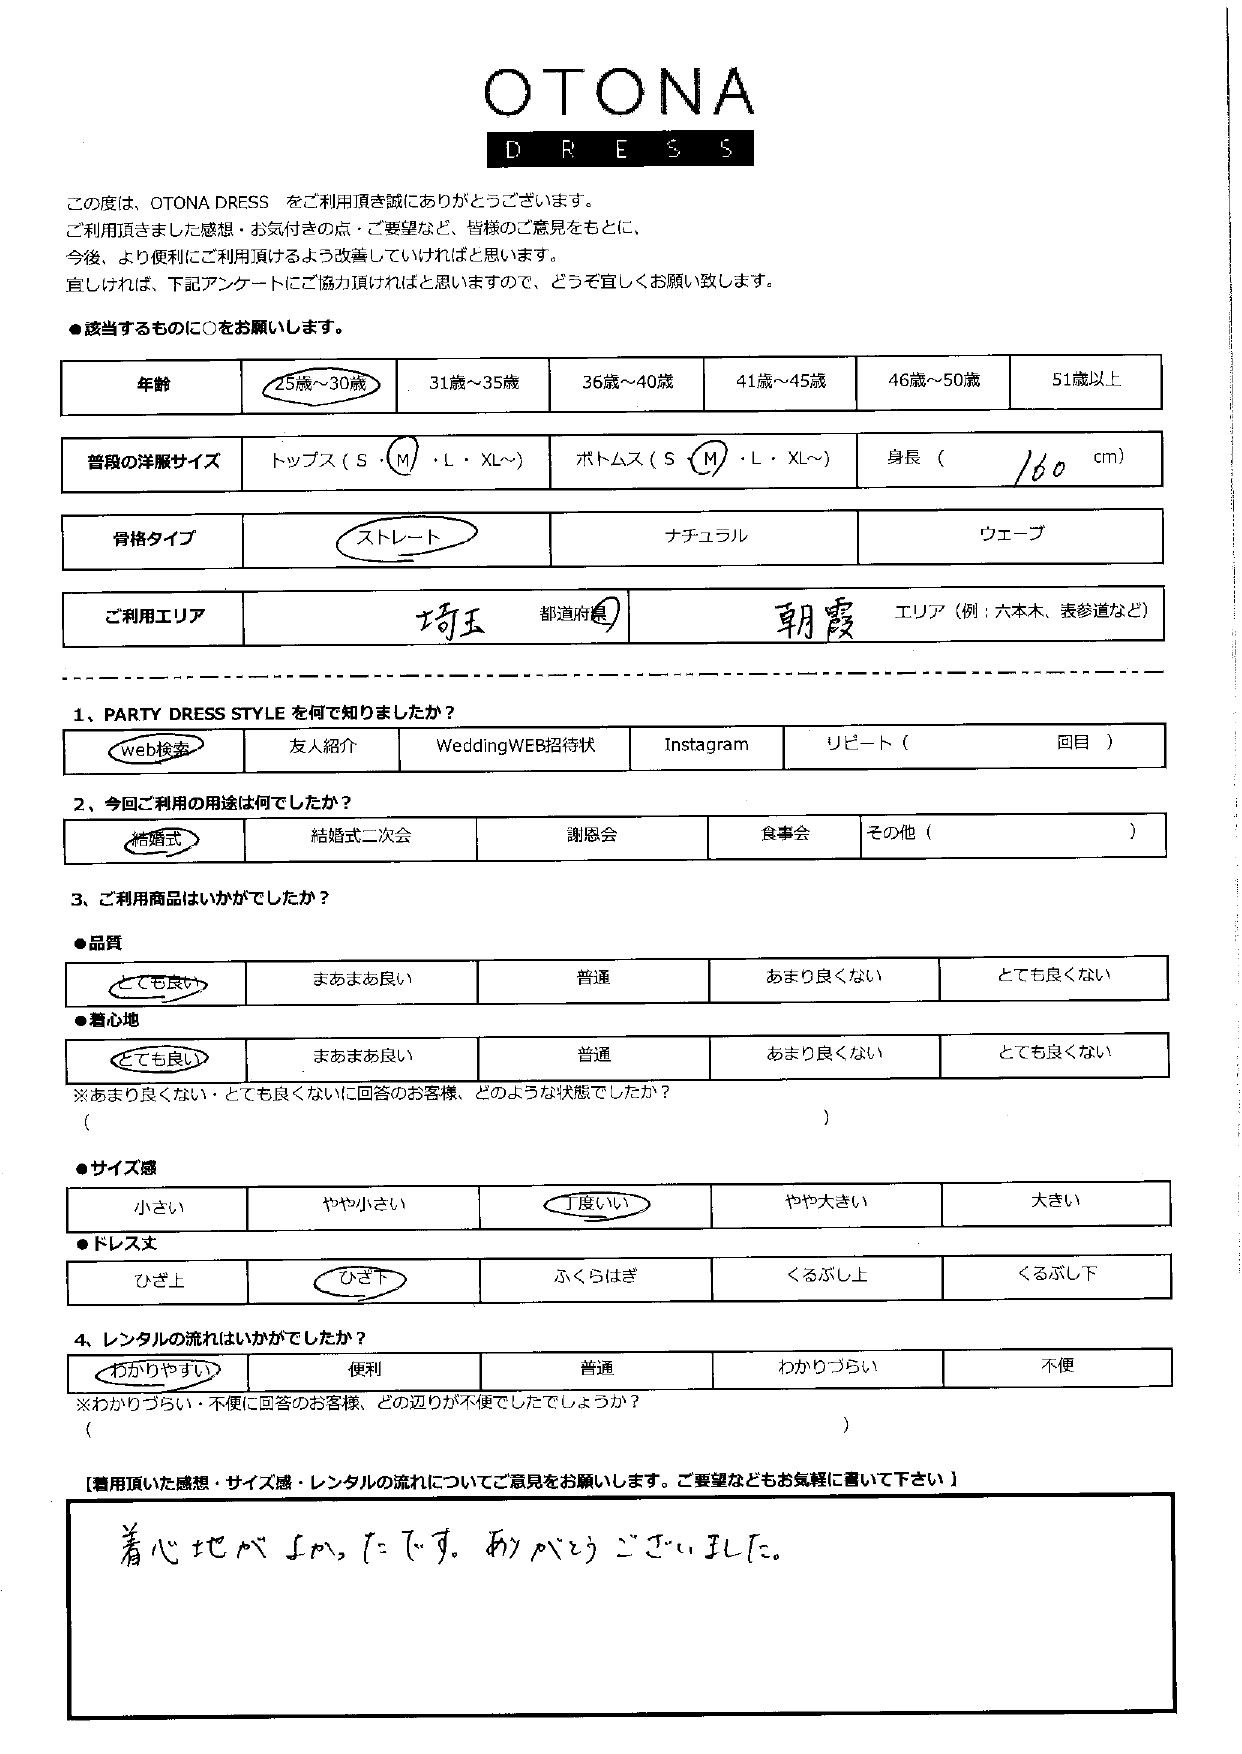 OTONA
DRESS
この度は、OTONA DRESS　をご利用頂き誠にありがとうございます。
ご利用頂きました感想・お気付きの点・ご要望など、皆様のご意見をもとに、
今後、より便利にご利用頂けるよう改善していければと思います。
宜しければ、下記アンケートにご協力頂ければと思いますので、どうぞ宜しくお願い致します。
●該当するものに○をお願いします。
年齢 25歳～30歳 31歳～35歳 36歳～40歳 41歳～45歳 46歳～50歳 51歳以上
普段の洋服サイズ トップス（ S ・ M ・ L ・ XL～） ボトムス（ S ・ M ・ L ・ XL～） 身長 （ 160 cm）
骨格タイプ ストレート ナチュラル ウェーブ
ご利用エリア 埼玉 都道府県 朝霞 エリア（例：六本木、表参道など）
1、PARTY DRESS STYLE を何で知りましたか？
web検索 友人紹介 WeddingWEB招待状 Instagram リピート（ 回目 ）
2、今回ご利用の用途は何でしたか？
結婚式 結婚式二次会 謝恩会 食事会 その他（ ）
3、ご利用商品はいかがでしたか？
●品質
とても良い まあまあ良い 普通 あまり良くない とても良くない
●着心地
とても良い まあまあ良い 普通 あまり良くない とても良くない
※あまり良くない・とても良くないに回答のお客様、どのような状態でしたか？
（ ）
●サイズ感
小さい やや小さい 丁度いい やや大きい 大きい
●ドレス丈
ひざ上 ひざ下 ふくらはぎ くるぶし上 くるぶし下
4、レンタルの流れはいかがでしたか？
わかりやすい 便利 普通 わかりづらい 不便
※わかりづらい・不便に回答のお客様、どの辺りが不便でしたでしょうか？
（ ）
【着用頂いた感想・サイズ感・レンタルの流れについてご意見をお願いします。ご要望などもお気軽に書いて下さい 】
着心地がよかったです。ありがとうございました。